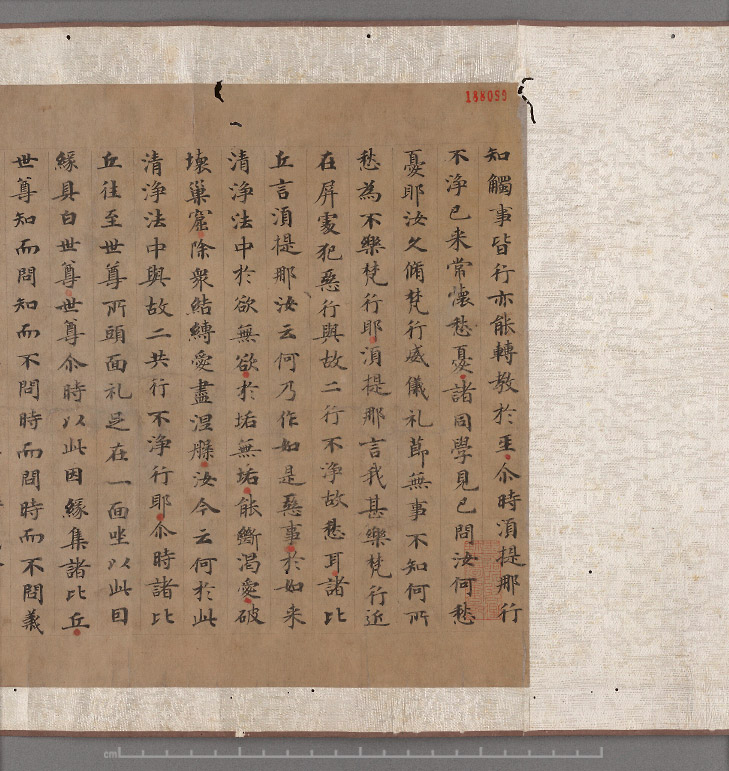 188099
知觸事皆行亦能轉教於王尒時湏提那行
不淨已来常懷愁憂諸同學見已問汝何愁
憂耶汝久脩梵行威儀礼莭無事不知何所
愁為不樂梵行耶湏提那言我甚樂梵行近
在屏處犯惡行與故二行不淨故愁耳諸比
丘言湏提那汝云何乃作如是惡事於如来
清淨法中於欲無欲於垢無垢能斷渴愛破
壞巢窟除衆結縛愛盡涅槃汝今云何於此
清淨法中與故二共行不淨行耶尒時諸比
丘往至世尊所頭面礼足在一面坐以此因
緣具白世尊世尊尒時以此因緣集諸比丘
世尊知而問知而不問時而問時而不問義
cm